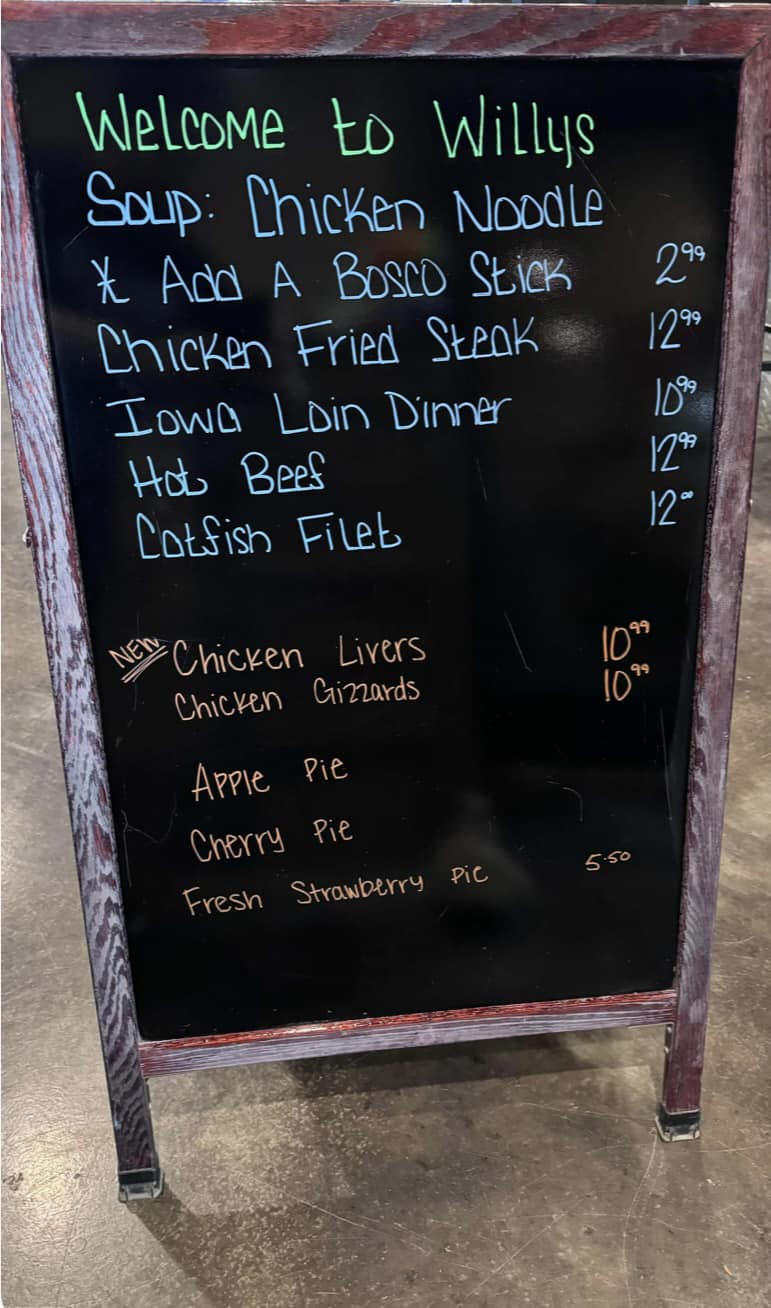 Welcome to Willys
Soup: Chicken Noodle
* Add A Bosco Stick 2.99
Chicken Fried Steak 12.99
Iowa Loin Dinner 10.99
Hot Beef 12.99
Catfish Filet 12.00
NEW Chicken Livers 10.99
Chicken Gizzards 10.99
Apple Pie
Cherry Pie
Fresh Strawberry Pie 5.50